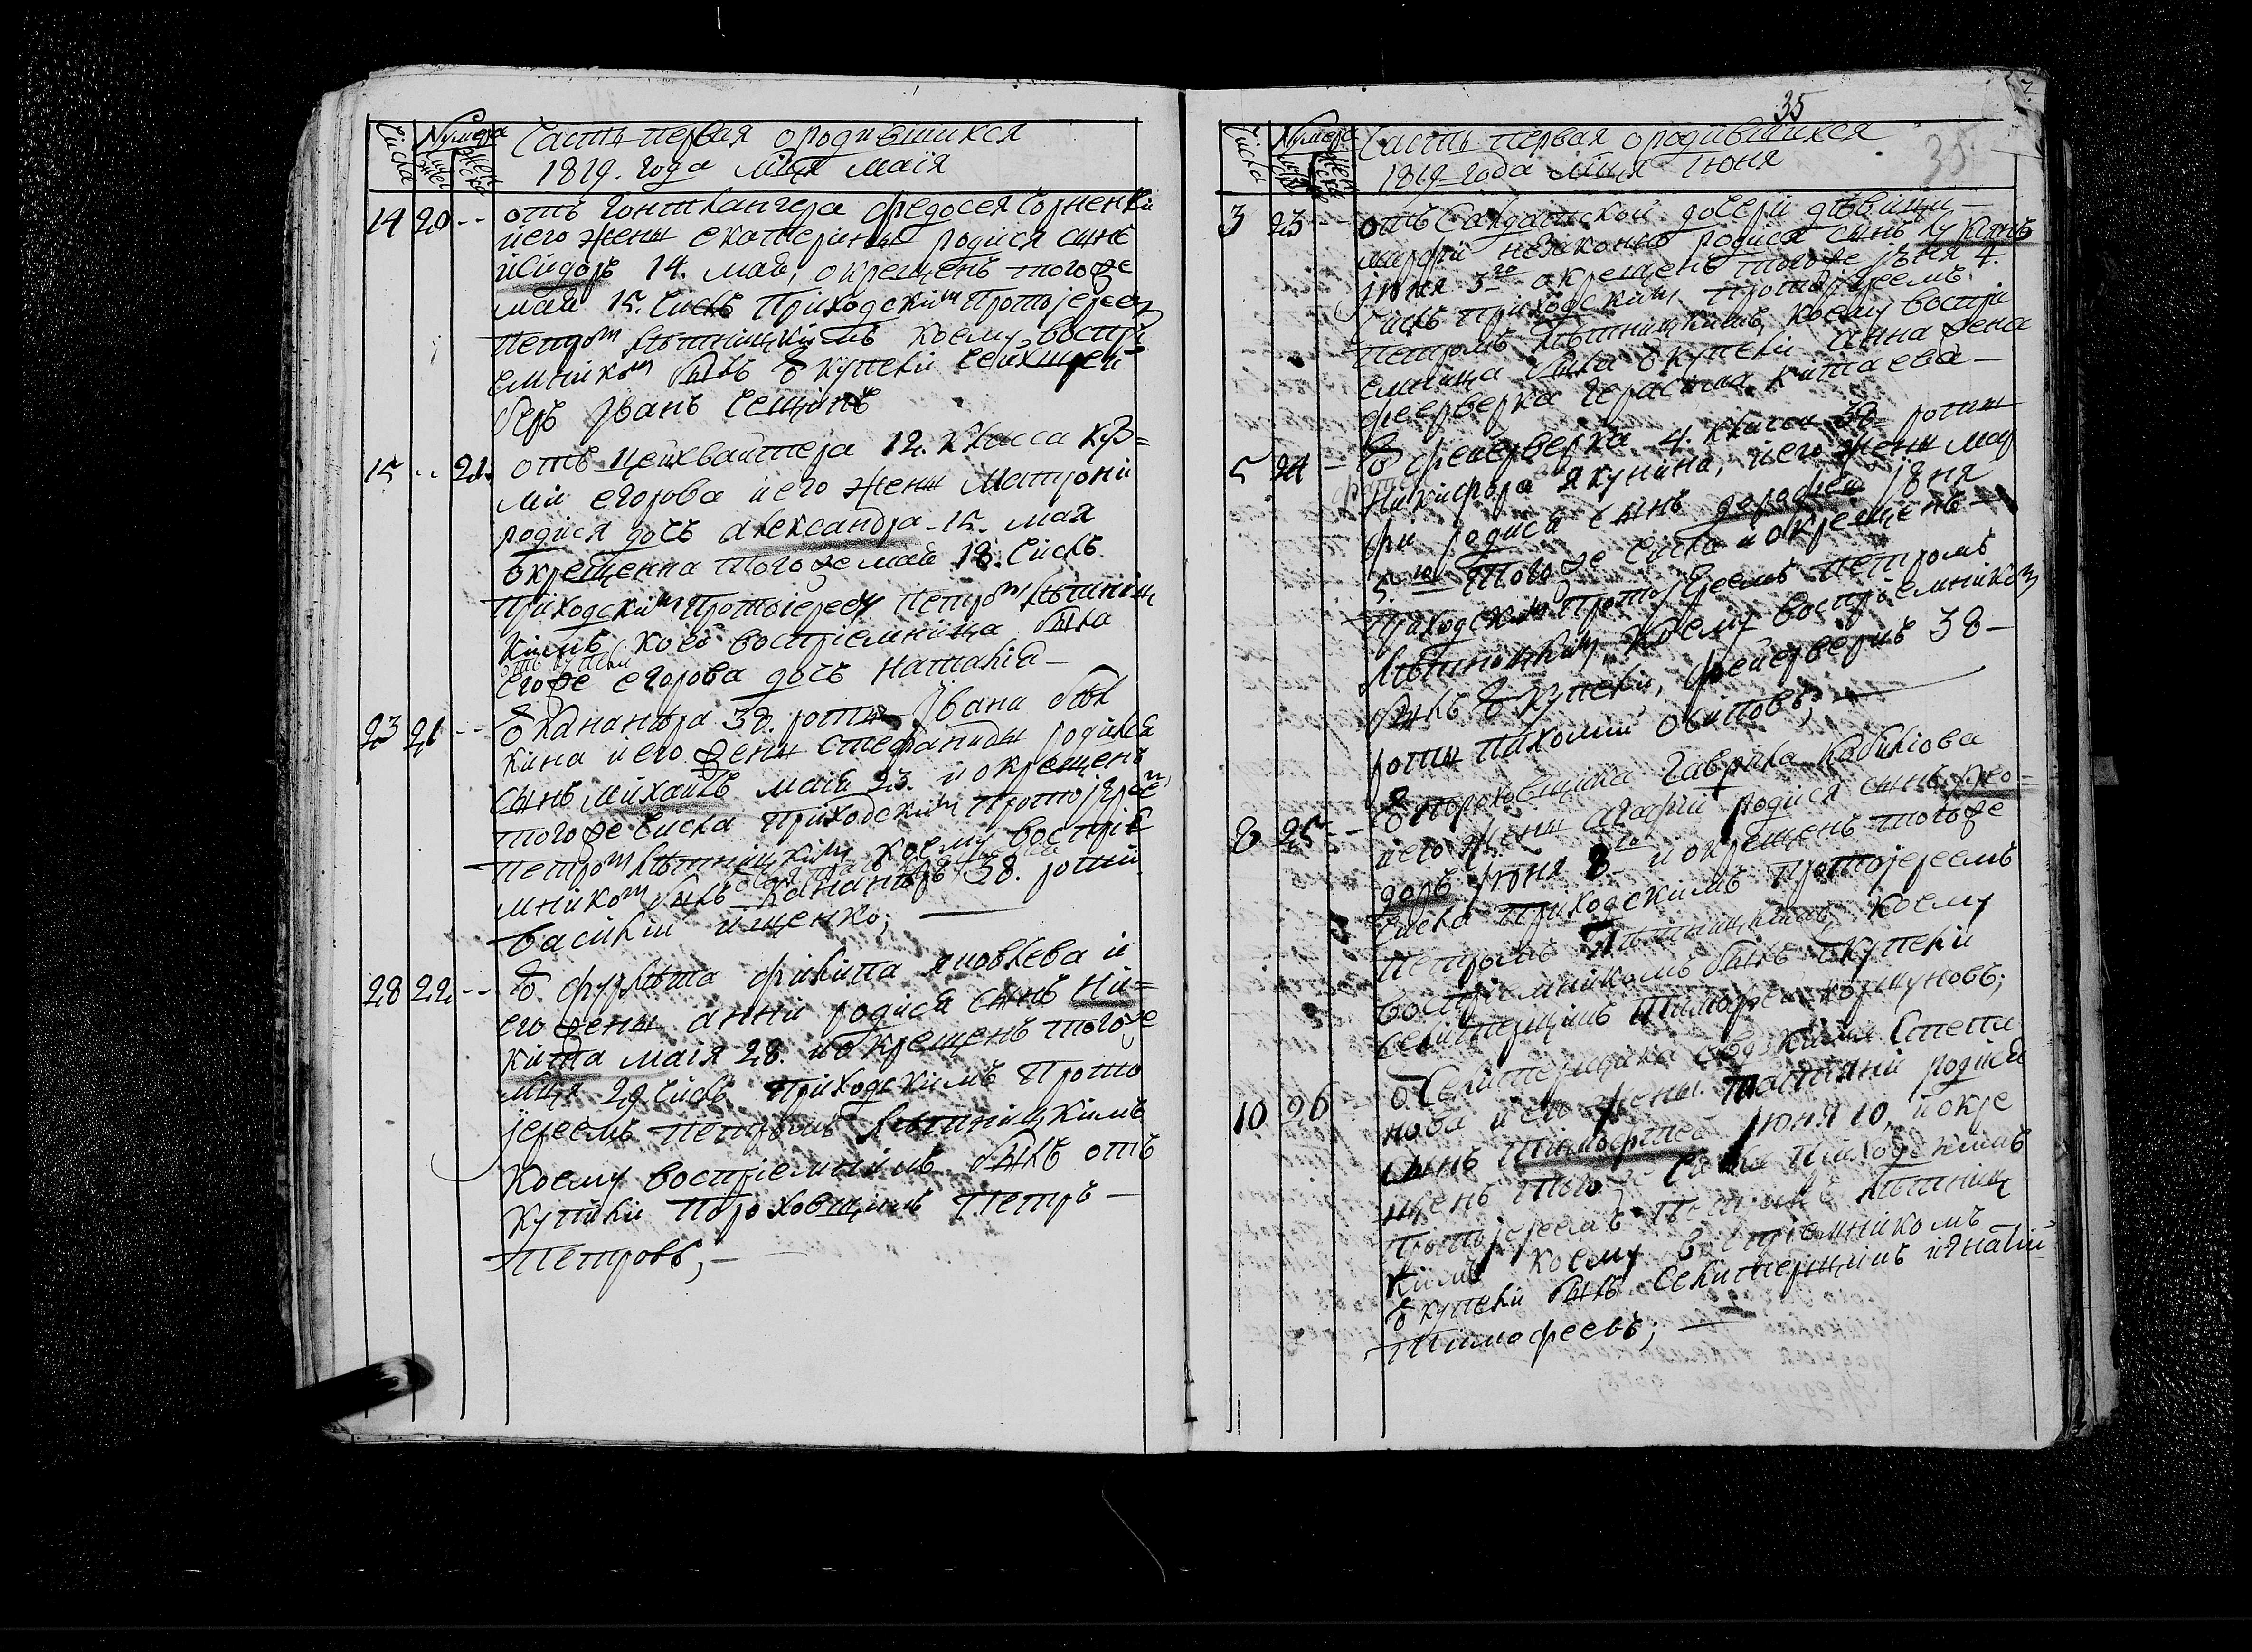 Числа
Нумера
мужес
женска
Часть первая ородившихся
1819. года мца маія
14 20 -- отъ гонтлангера Федосея Чорненка
иего жены екатерины родися сынъ
исидоръ 14. маія, окрещенъ тогоже
маія 15. числъ Приходскимъ Протоіереем
петром Лѣтницкимъ коему воспрі
емником былъ ѿ купели цейхшрей
беръ Іванъ
15 -- 21. отъ цейхвайтера 12. класса Куз=
мы егорова иего жены Матрони
родися дочъ александра 15. мая
окрещенна тогоже маія 18. числъ
Приходским Протоіереем петром Лѣтниц
кимъ коей воспріемница была
отъ купели
егоже егорова дочъ Наталія —
23 21 -- ѿ Канонѣра 38. роты Івана Бѣл
кина иего жены Стефаниды родился
сынъ Михаилъ маія 23. и окрещенъ
тогоже числа Приходским Протоіереем
петром Лѣтницким коему воспріе
мником былъ Канонѣръ 38. роты
Василій ищенко;
28 22. -- ѿ фурлѣта филипа яковлева и
его жены анни родися сынъ Ни=
кита маія 28. и окрещенъ того же
мца 29 числъ Приходскимъ Прото
іереемъ Петромъ Лѣтницкимъ
коему воспріемникъ былъ отъ
купѣли Пороховщикъ Петръ —
Петровъ; —
35
35
Числа
Нумера
Часть первая ородившихся
1819 года мца іюня
3 23 -- отъ Салдатской дочери дѣвици —
марфи незаконно родися сынъ Лукіянъ
іюня 3го окрещенъ тогоже іюня 4.
числъ приходскимъ протоіереемъ
Петромъ Лѣтницкимъ коему воспрі
емница была ѿ купели анна жена
феерверка Герасима китаева —
5 24 - ѿ фейерверка 4. класса 38 роты
Никифора якунина, иего жены мар
фи родися сынъ дорофей іюня
5.го тогоже числа и окрещенъ —
Приходским Протоіереемъ Петромъ
Лѣтницким коему воспріемником
былъ ѿ купели, фейерверкъ 38 —
роты Пахомій Осиповъ; —
8 25 -- ѿ пороховщика Гаврила
иего жены агафіи родися сынъ Фео=
доръ іюня 8го и окрещенъ тогоже
числа приходскимъ Протоіереемъ
Петромъ Лѣтницкимъ коему
воспріемникомъ былъ ѿ купели
селитерщикъ Тимофей коршуновъ;
10 26 ѿ Селитерщика евдокима Степа
нова иего жены татіяни родися
сынъ Тимофтей іюня 10, и окре
щенъ тогоже числа Приходскимъ
Протоіереемъ Петромъ Лѣтниц
кимъ коему воспріемникомъ
ѿ купели былъ Селитерщикъ игнатій
Тимофеевъ; —